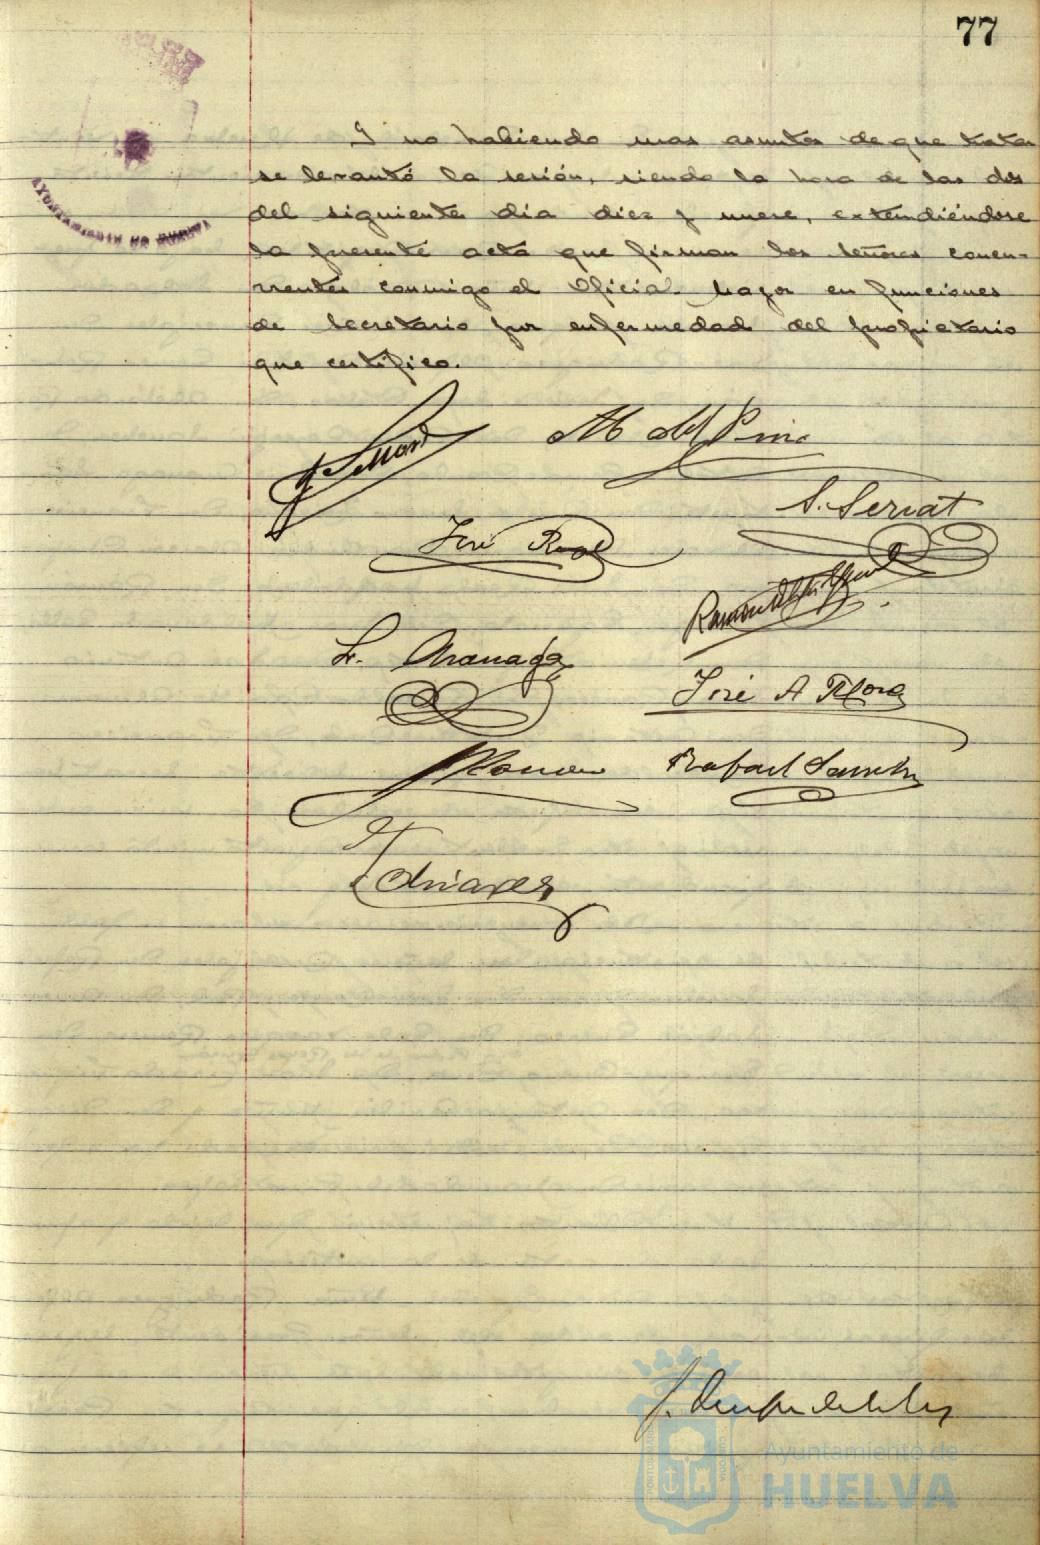 77
Y no habiendo mas asuntos de que tratar
se levantó la sesión, siendo la hora de las dos
del siguiente dia diez y nueve, extendiéndose
la presente acta que firman los señores concu-
rrentes conmigo el Oficial Mayor en funciones
de Secretario por enfermedad del propietario
que certifico.
AYUNTAMIENTO DE HUELVA
M del Pino
S. Serrat
José Real
Ramon
L. Aranaga
José A Mora
Rafael Sanchez
Ayuntamiento de
HUELVA